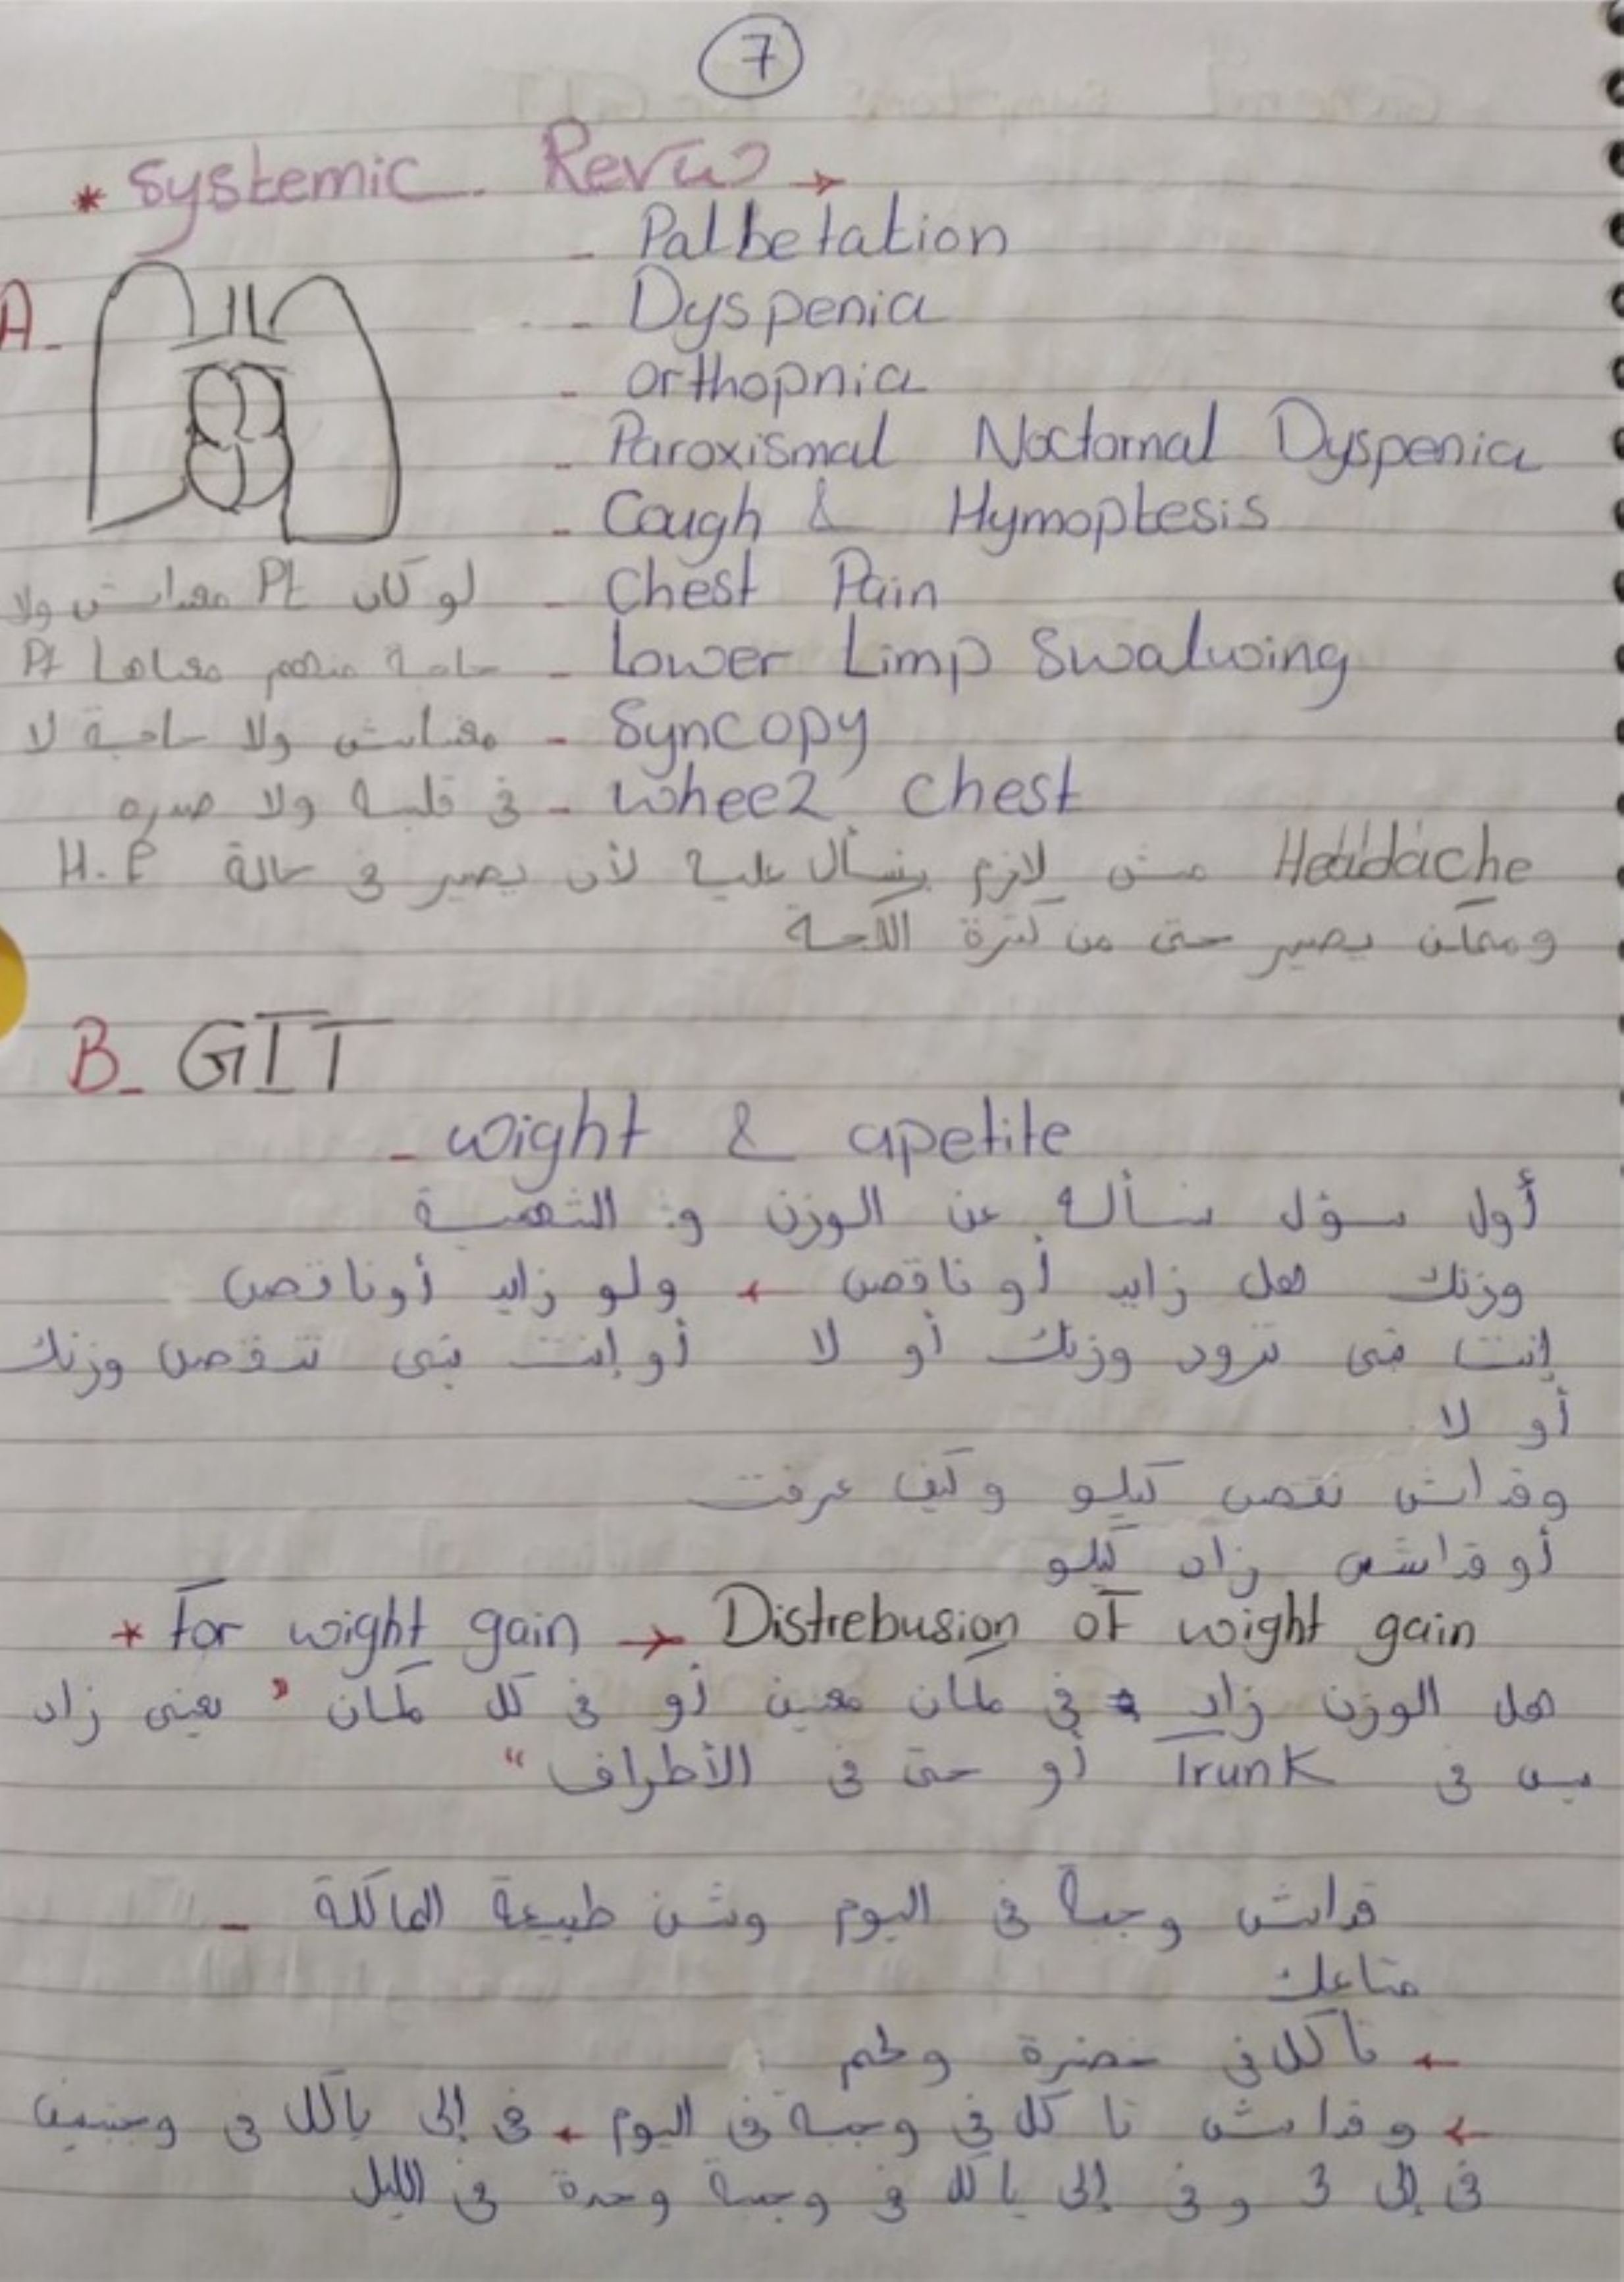 7
* Systemic Review →
A-
- Palbetation
- Dyspenia
- orthopnia
- Paroxismal Noctornal Dyspenia
- Cough & Hymoptesis
- Chest Pain
- Lower Limp Swalwing
- Syncopy
- wheez chest
لو كان Pt معداش ولا
حاجة منهم معناها Pt
معنداش ولا حاجة لا
في قلبه ولا صدره
Headache مش لازم ينسأل عليه لأن يصير في حالة H.F
وممكن يصير حتى من كترة الكحة
B- GIT
- wight & apetite
أول سؤل نسأله عن الوزن و الشهية
وزنك هل زايد أو ناقص ← ولو زايد أو ناقص
إنت تبي تزود وزنك أو لا أو إنت تبي تنقص وزنك
أو لا
وقداش نقص كيلو وكيف عرفت
أو قداش زاد كيلو
* For wight gain → Distrebusion of wight gain
هل الوزن زاد في مكان معين أو في كل مكان " يعني زاد
بس في Trunk أو حتى في الأطراف "
قداش وجبة في اليوم وشن طبيعة الماكلة -
متاعك
← تاكل في خضرة ولحم
← وقداش تاكل في وجبة في اليوم ← في إلي ياكل في وجبتين
في إلي 3 وفي إلي ياكل في وجبة وحدة في الليل